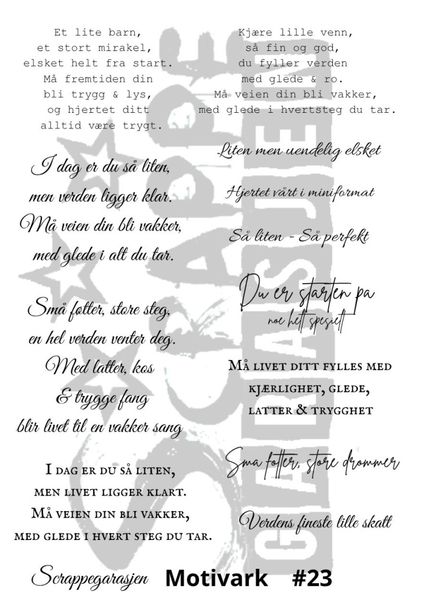 Et lite barn,
et stort mirakel,
elsket helt fra start.
Må fremtiden din
bli trygg & lys,
og hjertet ditt
alltid være trygt.
Kjære lille venn,
så fin og god,
du fyller verden
med glede & ro.
Må veien din bli vakker,
med glede i hvertsteg du tar.
I dag er du så liten,
men verden ligger klar.
Må veien din bli vakker,
med glede i alt du tar.
Liten men uendelig elsket
Hjertet vårt i miniformat
Så liten - Så perfekt
Du er starten på
noe helt spesielt
Små føtter, store steg,
en hel verden venter deg.
Med latter, kos
& trygge fang
blir livet til en vakker sang
Må livet ditt fylles med
kjærlighet, glede,
latter & trygghet
Små føtter, store drømmer
I dag er du så liten,
men livet ligger klart.
Må veien din bli vakker,
med glede i hvert steg du tar.
Verdens fineste lille skatt
Scrappegarasjen Motivark #23
SCRAPPE
GARASJEN